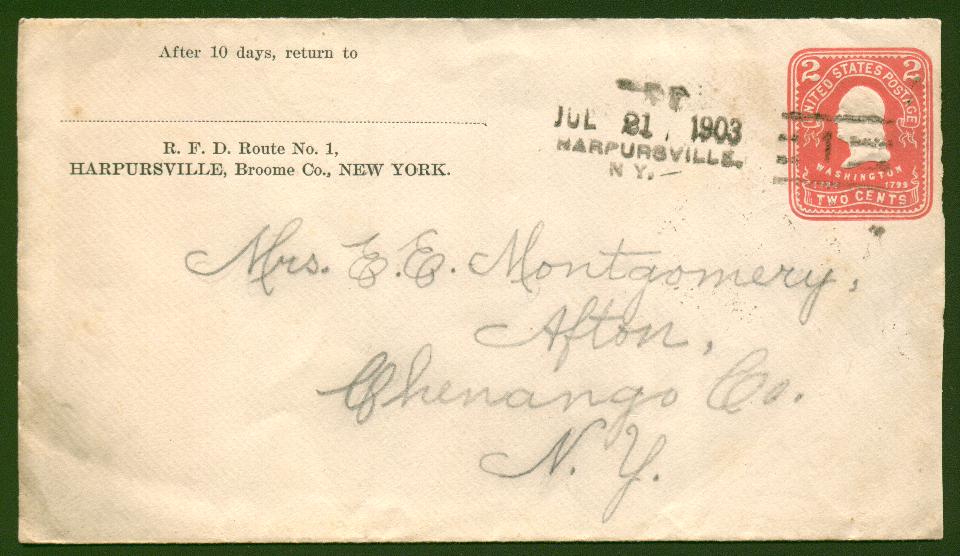 After 10 days, return to
R. F. D. Route No. 1,
HARPURSVILLE, Broome Co., NEW YORK.
JUL 21 1903
HARPURSVILLE.
N.Y.
1
2 2
UNITED STATES POSTAGE
WASHINGTON
1799
TWO CENTS
Mrs. E. E. Montgomery,
Afton,
Chenango Co.
N. Y.